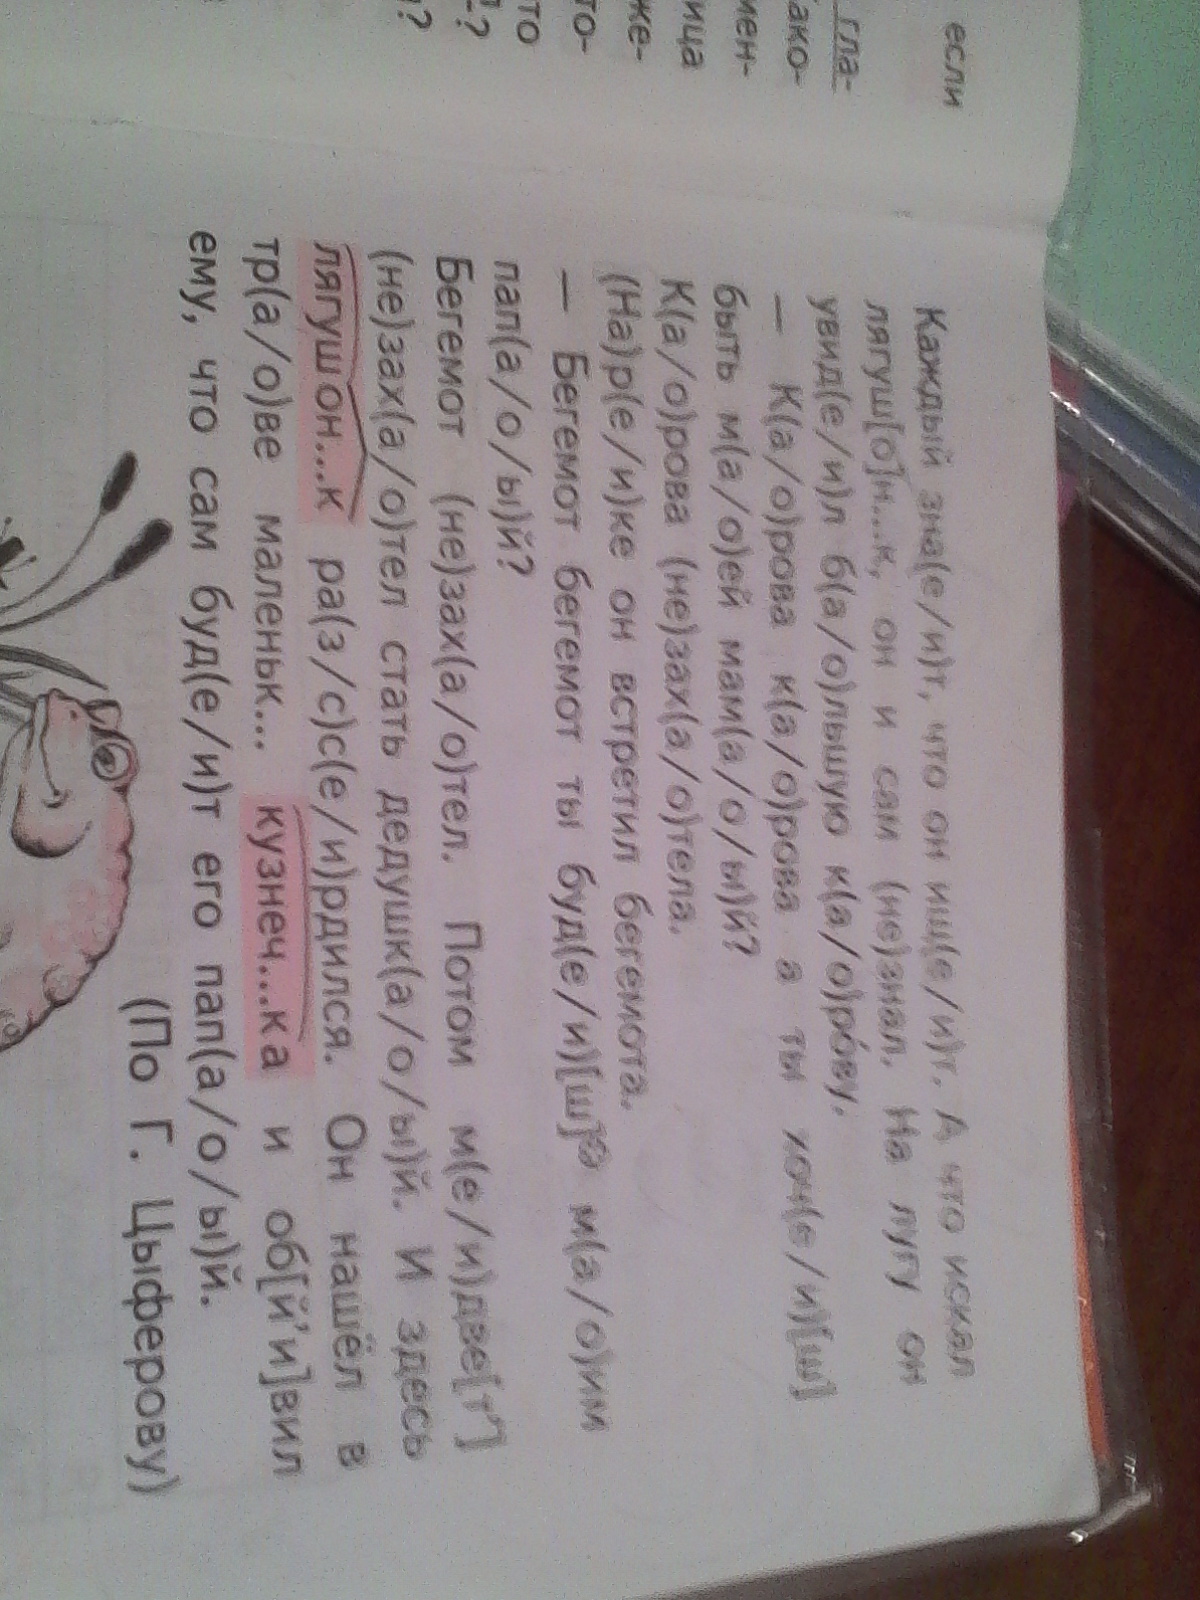 если
гла-
ако-
мен-
ица
же-
то-
то
?
?
Каждый зна(е/и)т, что он ищ(е/и)т. А что искал
лягуш[о]н...к, он и сам (не)знал. На лугу он
увид(е/и)л б(а/о)льшую к(а/о)ро́ву.
— К(а/о)рова к(а/о)рова а ты хоч(е/и)[ш]
быть м(а/о)ей мам(а/о/ы)й?
К(а/о)рова (не)зах(а/о)тела.
(На)р(е/и)ке он встретил бегемота.
— Бегемот бегемот ты буд(е/и)[ш] м(а/о)им
пап(а/о/ы)й?
Бегемот (не)зах(а/о)тел. Потом м(е/и)две[т']
(не)зах(а/о)тел стать дедушк(а/о/ы)й. И здесь
лягушон...к ра(з/с)с(е/и)рдился. Он нашёл в
тр(а/о)ве маленьк... кузнеч...ка и об[й'и]вил
ему, что сам буд(е/и)т его пап(а/о/ы)й.
(По Г. Цыферову)